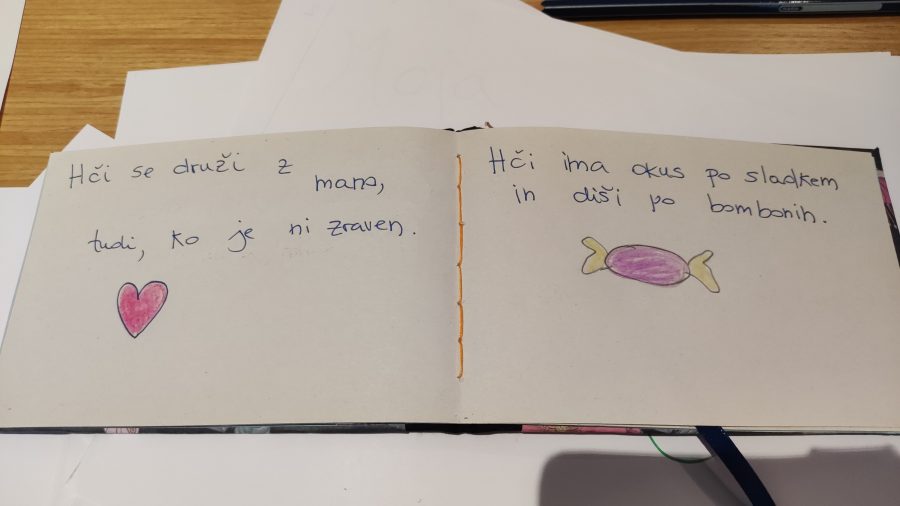 Hči se druži z
mano,
tudi, ko je ni zraven.
Hči ima okus po sladkem
in diši po bombonih.